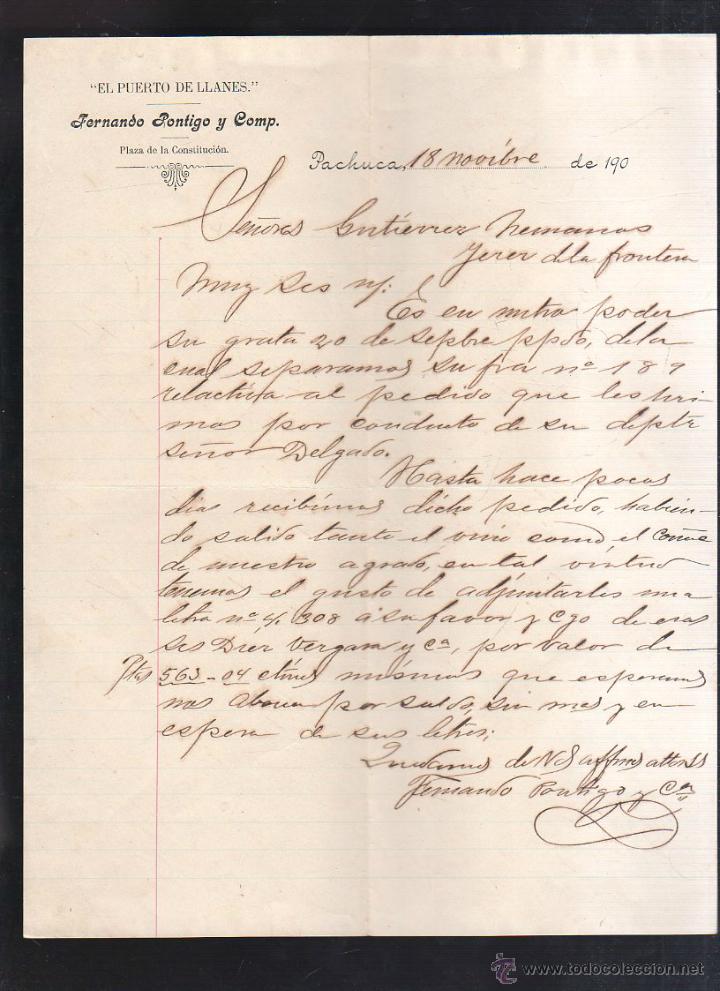 "EL PUERTO DE LLANES."
Fernando Pontigo y Comp.
Plaza de la Constitución.
Pachuca, 18 novibre de 190
Señores Gutiérrez Hermanos
Jerez dla frontera
Muy Sres n/:
Es en nutro poder
su grata 20 de Sepbre ppdo, dela
cual separamos su fra nº 189
relactiva al pedido que les hici
mos por conducto de su depte
señor Delgado.
Hasta hace pocos
dias recibimos dicho pedido, habien-
do salido tanto el vino como el Coñac
de nuestro agrado, en tal virtud
tenemos el gusto de adjuntarles una
letra nº 4308 á su favor y cgo de esos
Sres Diéz Vergara y Cª, por valor de
Ptas 563-04 ctims mismas que esperamos
nos abonen por saldo, sin mas y en
espera de sus letras;
Quedamos de Vds affmos attos SS
Fernando Pontigo y Cª
www.todocoleccion.net